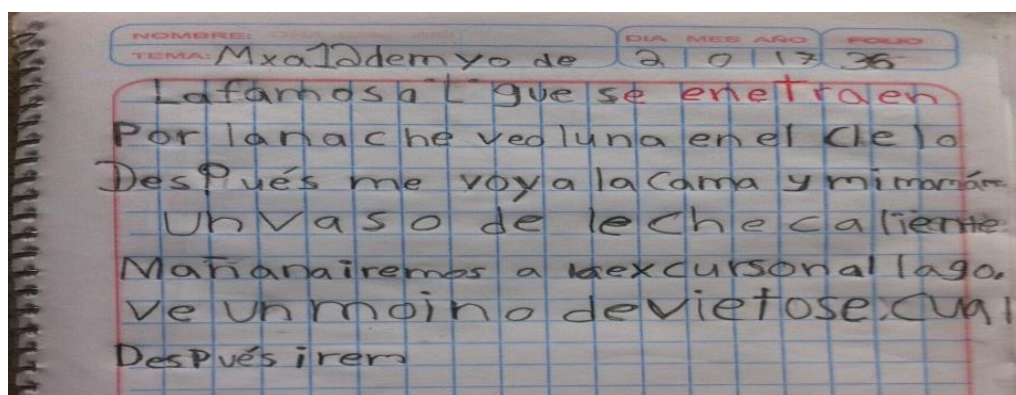 NOMBRE: DIA MES AÑO FOLIO
TEMA: Mxa12demyo de 2 0 17 36
Lafamosa L gue se enetraen
Por lanache veo luna en el cielo
Después me voy a la cama y mi mamá
Un vaso de leche caliente.
Mañana iremos a excursonal lago.
Ve un moino devietose.cual
Después irem